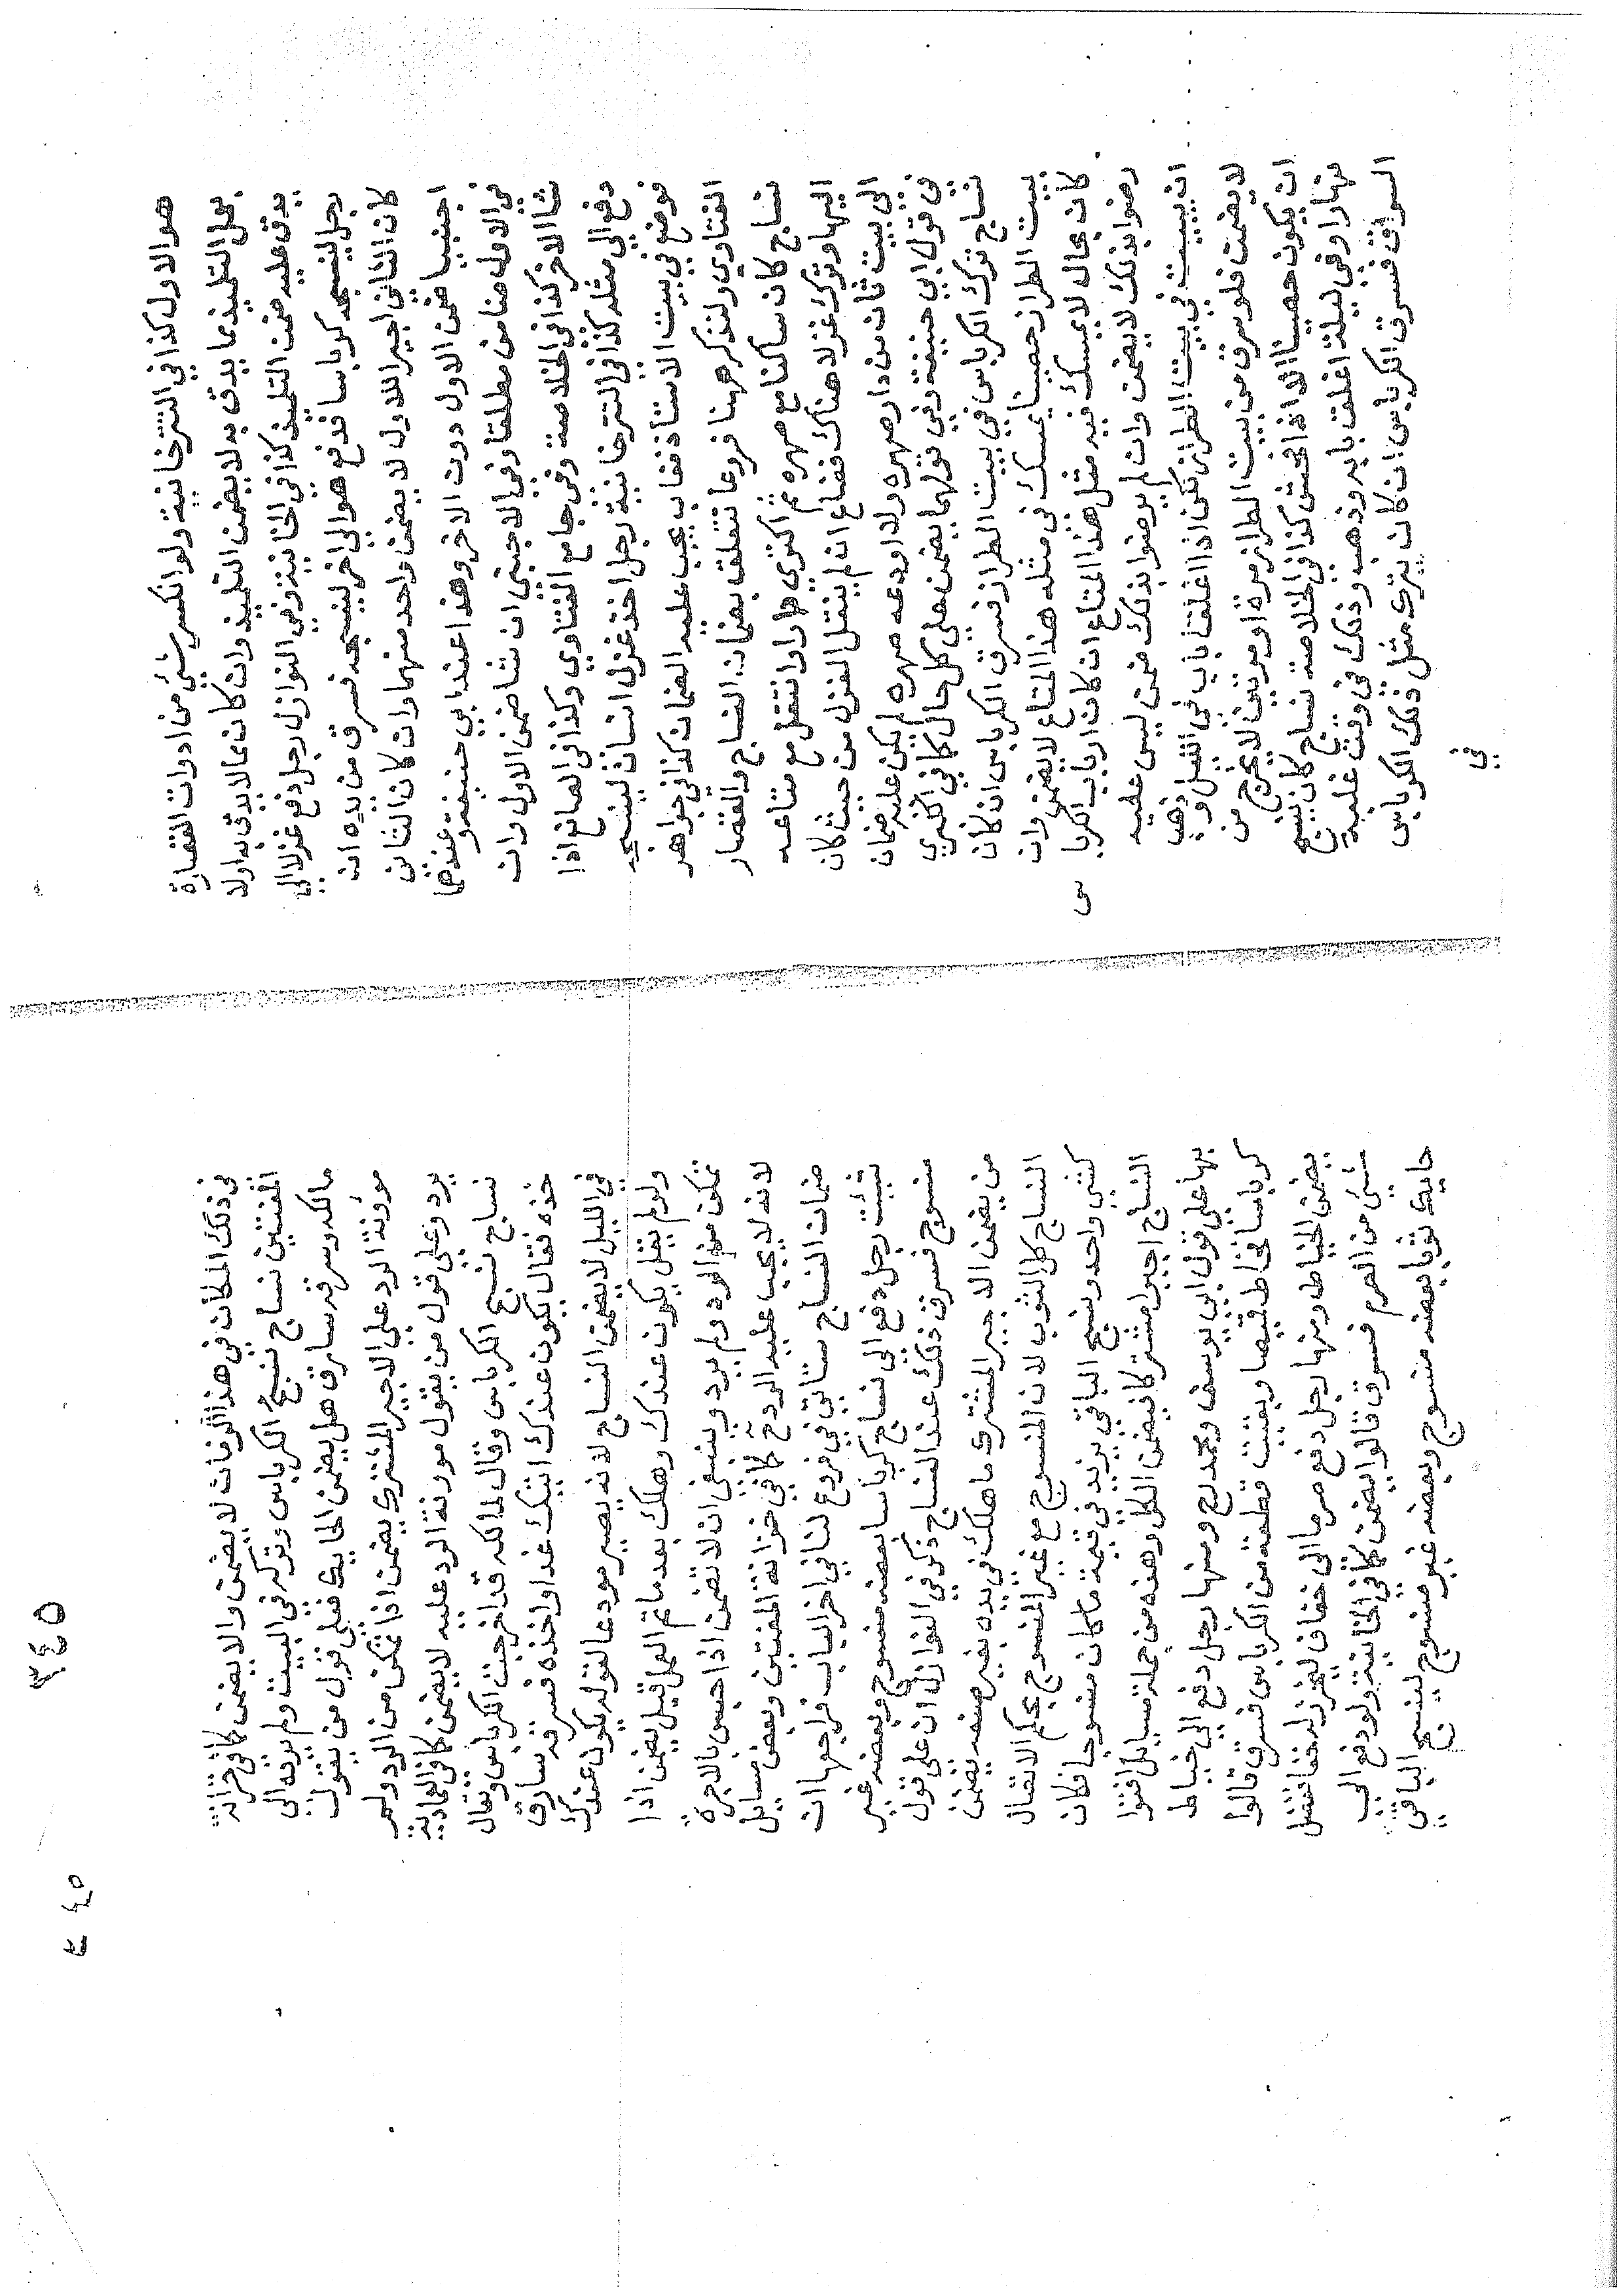 هو الاول كذا في التترخانية ولو انكسر شئ من ادوات القصارة
بعمل التلميذ مما يدق به لا يضمن التلميذ وان كان مما لا يدق به اولا
يدق عليه ضمن التلميذ كذا في الخانية وفي النوازل رجل دفع غزلا الي
رجل لينسجه كرباسا فدفع هو الي اخر لينسجه فسرق من يده ان
كان الثاني اجيرا للاول لا يضمن واحد منهما وان كان الثاني
اجنبيا ضمن الاول دون الاخر وهذا عند ابي حنيفة وعندهما
في الاول ضامن مطلقا وفي الاجنبي ان شا ضمن الاول وان
شا الاخر كذا في الخلاصة وفي جامع الفتاوي وكذا في الصانع اذا
دفع الي مثله كذا في التترخانية رجل اخذ غزل انسان لينسجه
فوضع في بيت الاستاذ فغاب يجب عليه الضمان كذا في جواهر
الفتاوي ولنذكر ههنا فروعا تتعلق بضمان النساج والقصار
نساج كان ساكنا مع صهره ثم اكتري دارا وانتقل مع متاعه
اليها وترك غزلا هناك فضاع ان لم ينقل الغزل من حيث كان
الي بيت ثان من دار صهره ولا اودعه صهره لم يكن عليه ضمان
في قول ابي حنيفة وفي قولهما يضمن علي كل حال كما في اكتري
نساج ترك الكرباس في بيت الطراز فسرق الكرباس ان كان
بيت الطراز حصينا يمسك في مثله هذا المتاع لا يضمن وان
كان بحال لا يمسك فيه مثل هذا المتاع ان كان ارباب الكربا س
رضوا بذلك لا يضمن وان لم يرضوا بذلك ضمن ليس عليه
ان يبيت في بيت الطراز لكن اذا اغلق باب في الليل وذهب
لا يضمن فلو سرق من بيت الطراز مرة او مرتين لا يخرج من
ان يكون حصينا الا اذا فحش كذا في الخلاصة نساج كان ينسج
نهارا وفي ليلة اغلق بابه وذهب وذلك في وقت غلبة
السوق فسرق الكرباس ان كان يترك مثل ذلك الكرباس
في
٣٤٥
٣٤٥
في ذلك المكان في هذا الوقت لا يضمن والا يضمن كما في خزانة
المفتيين نساج نسج الكرباس وتركه في البيت ولم يرده الي
مالكه وسرقه سارق هل يضمن الحايك فعلي قول من يقول
مؤنة الرد علي الاجير المشترك يضمن اذا تمكن من الرد ولم
يرد وعلي قول من يقول مؤنة الرد عليه لا يضمن كما في العمادية
نساج نسج الكرباس وقال لمالكه قد اخرجت الكرباس وتعال
خذه فقال يكون عندك اتيك غدا واخذه فسرقه سارق
في الليل لا يضمن النساج لانه يصير مودعا لقوله يكون عندك
ولو لم يقل يكون عندك وهلك بعد ما تم العمل قيل يضمن اذا
تمكن من الرد ولم يرد وينبغي ان لا تضمن اذا حبس بالاجرة
لانه لا يجب عليه الرد ح كما في خزانة المفتيين وبعض مسايل
ضمان النساج ستاتي في فروع لنا في اخر الباب فراجعها ان
شئت رجل دفع الي نساج كرباسا بعضه منسوج وبعضه غير
منسوج فسرق ذلك عند النساج ذكر في النوازل ان علي قول
من يضمن الاجير المشترك ما هلك في يده بغير صنعه يضمن
النساج كل الثوب لان المنسوج مع غير المنسوج بحكم الاتصال
كشئ واحد ونسج الباقي يزيد في قيمة ما كان منسوجا فكان
النساج اجيرا مشتركا فيضمن الكل وهذه من جملة مسايل افتوا
بها علي قول ابي يوسف ومحمد رح ومنها رجل دفع الي خياط
كرباسا فخاط قميصا وبقيت قطعة من الكرباس فسرق قالوا
يضمن الخياط ومنها رجل دفع صرما الي خفاف ليخرز له خفا ففضل
شئ من الصرم فسرق قالوا يضمن كما في الخانية ولو دفع الي
حايك ثوبا بعضه منسوج وبعضه غير منسوج لينسج الباقي